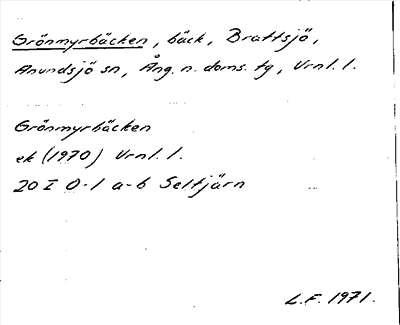 Grönmyrbäcken, bäck, Brattsjö,
Anundsjö sn, Ång. n. doms. tg, Vrnl. l.
Grönmyrbäcken
ek (1970) Vrnl. l.
20 I 0-1 a-b Seltjärn
L.F. 1971.